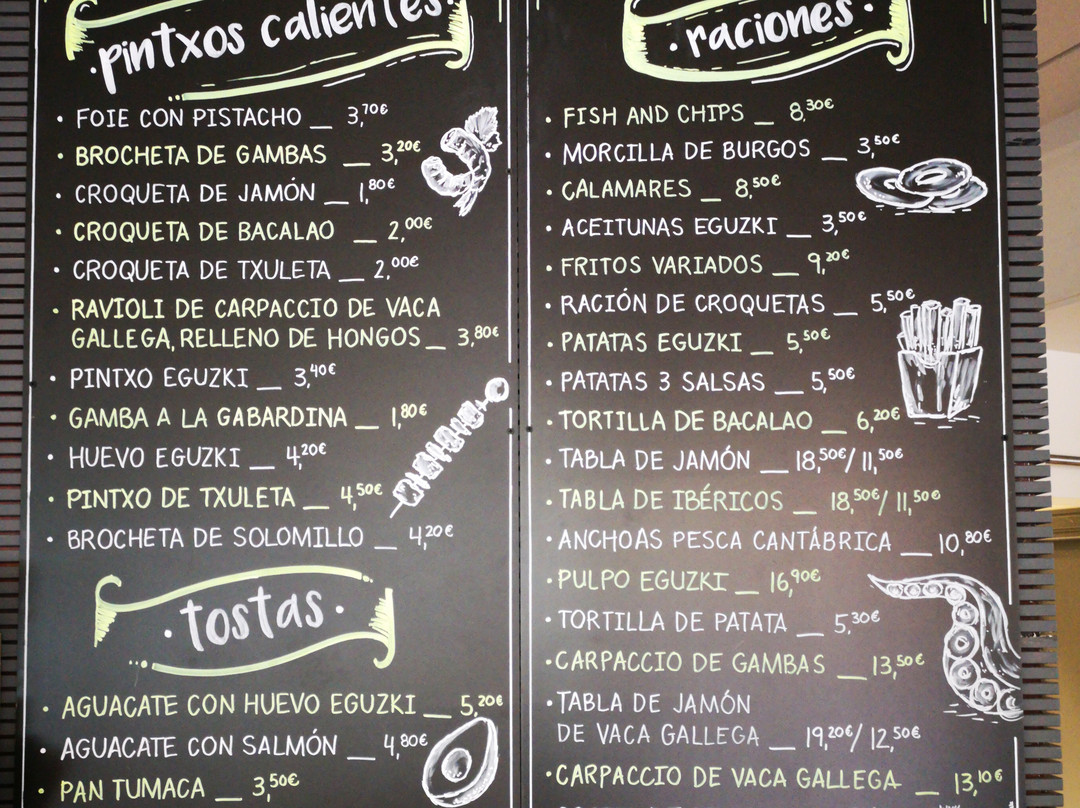 ·pintxos calientes·
· FOIE CON PISTACHO __ 3,70€
· BROCHETA DE GAMBAS __ 3,20€
· CROQUETA DE JAMÓN __ 1,80€
· CROQUETA DE BACALAO __ 2,00€
· CROQUETA DE TXULETA __ 2,00€
· RAVIOLI DE CARPACCIO DE VACA
GALLEGA, RELLENO DE HONGOS __ 3,80€
· PINTXO EGUZKI __ 3,40€
· GAMBA A LA GABARDINA __ 1,80€
· HUEVO EGUZKI __ 4,20€
· PINTXO DE TXULETA __ 4,50€
· BROCHETA DE SOLOMILLO __ 4,20€
·tostas·
· AGUACATE CON HUEVO EGUZKI __ 5,20€
· AGUACATE CON SALMÓN __ 4,80€
· PAN TUMACA __ 3,50€
·raciones·
· FISH AND CHIPS __ 8,30€
· MORCILLA DE BURGOS __ 3,50€
· CALAMARES __ 8,50€
· ACEITUNAS EGUZKI __ 3,50€
· FRITOS VARIADOS __ 9,20€
· RACIÓN DE CROQUETAS __ 5,50€
· PATATAS EGUZKI __ 5,50€
· PATATAS 3 SALSAS __ 5,50€
· TORTILLA DE BACALAO __ 6,20€
· TABLA DE JAMÓN __ 18,50€/ 11,50€
· TABLA DE IBÉRICOS __ 18,50€/ 11,50€
· ANCHOAS PESCA CANTÁBRICA __ 10,80€
· PULPO EGUZKI __ 16,90€
· TORTILLA DE PATATA __ 5,30€
· CARPACCIO DE GAMBAS __ 13,50€
· TABLA DE JAMÓN
DE VACA GALLEGA __ 19,20€/ 12,50€
· CARPACCIO DE VACA GALLEGA __ 13,10€